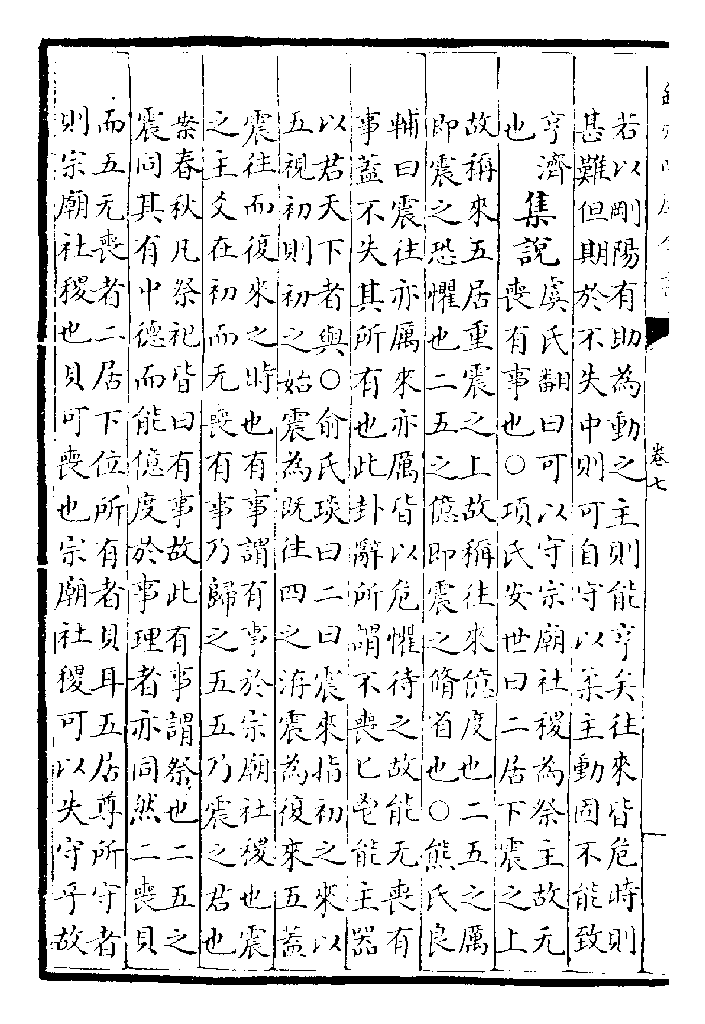 卷七
若以剛陽有助為動之主則能亨矣往來皆危時則
甚難但期於不失中則可自守以柔主動固不能致
亨濟
也
集說
虞氏翻曰可以守宗廟社稷為祭主故无
喪有事也○項氏安世曰二居下震之上
故稱來五居重震之上故稱往來億度也二五之厲
即震之恐懼也二五之億即震之脩省也○熊氏良
輔曰震往亦厲來亦厲皆以危懼待之故能无喪有
事蓋不失其所有也此卦辭所謂不喪匕鬯能主器
以君天下者與○俞氏琰曰二曰震來指初之來以
五視初則初之始震為既往四之洊震為復來五蓋
震往而復來之時也有事謂有事於宗廟社稷也震
之主爻在初而无喪有事乃歸之五五乃震之君也
案春秋凡祭祀皆曰有事故此有事謂祭也二五之
震同其有中德而能億度於事理者亦同然二喪貝
而五无喪者二居下位所有者貝耳五居尊所守者
則宗廟社稷也貝可喪也宗廟社稷可以失守乎故